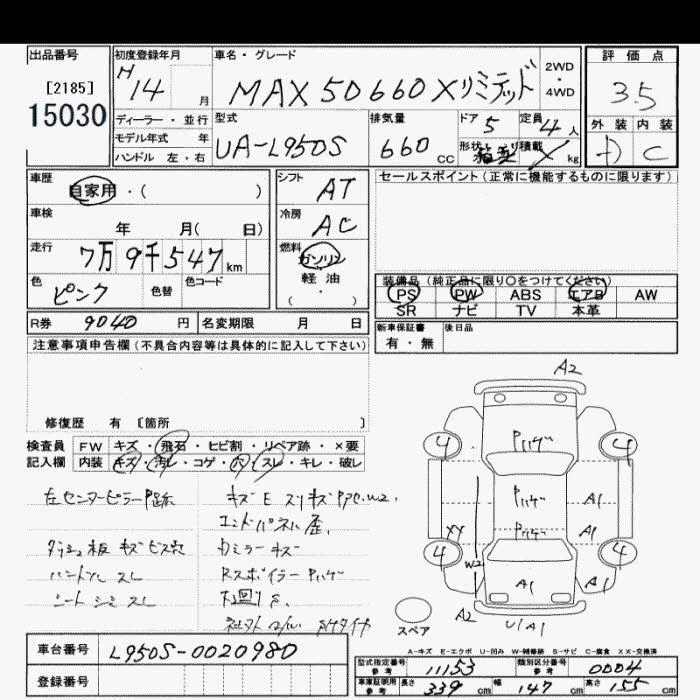 出品番号
[2185]
15030
初度登録年月
H14 月
車名・グレード
MAX 50 660 Xリミテッド
2WD
・
4WD
評価点
3.5
外装 内装
D C
ディーラー・並行
モデル年式 年
ハンドル 左・右
型式
UA-L950S
排気量
660 CC
ドア 5
定員 4人
形状 積載 kg
車歴
自家用・( )
車検
年 月( 日)
走行
7万9千547 km
色
ピンク
色替
色コード
シフト
AT
冷房
AC
燃料
ガソリン
軽油
( ・ )
セールスポイント(正常に機能するものに限ります)
装備品(純正品に限り○をつけてください)
PS PW ABS エアB AW
SR ナビ TV 本革
R券 9040 円
名変期限 月 日
新車保証書
有・無
後日品
注意事項申告欄(不具合内容等は具体的に記入して下さい)
修復歴 有〔箇所 〕
検査員
記入欄
FW キズ・飛石・ヒビ割・リペア跡・×要
内装 キズ・汚レ・コゲ・穴・スレ・キレ・破レ
左センターピラーP跡
ダッシュ板 キズ ビス穴
ハンドル スレ
シート シミ スレ
キズ E スリキズ PPC.W2.
エンドパネル 歪.
カミラー キズ
Rスポイラー Pハゲ
下廻り S.
A2
4 4
Pハゲ
Pハゲ
A1
Pハゲ
A1
XX
4 4
W2
A1 A1
A2
U1A1
スペア
A-キズ E-エクボ U-凹み W-補修跡 S-サビ C-腐食 XX-交換済
車台番号 L950S-0020980
登録番号
型式指定番号
参考
11153
類別区分番号
参考
0004
車庫証明用
参考
長さ 339 cm
幅 147 cm
高さ 155 cm